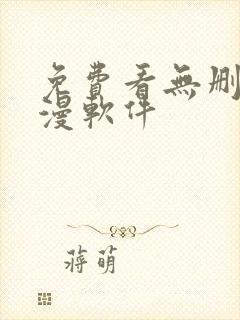 免費看無刪
漫軟件
蔣萌